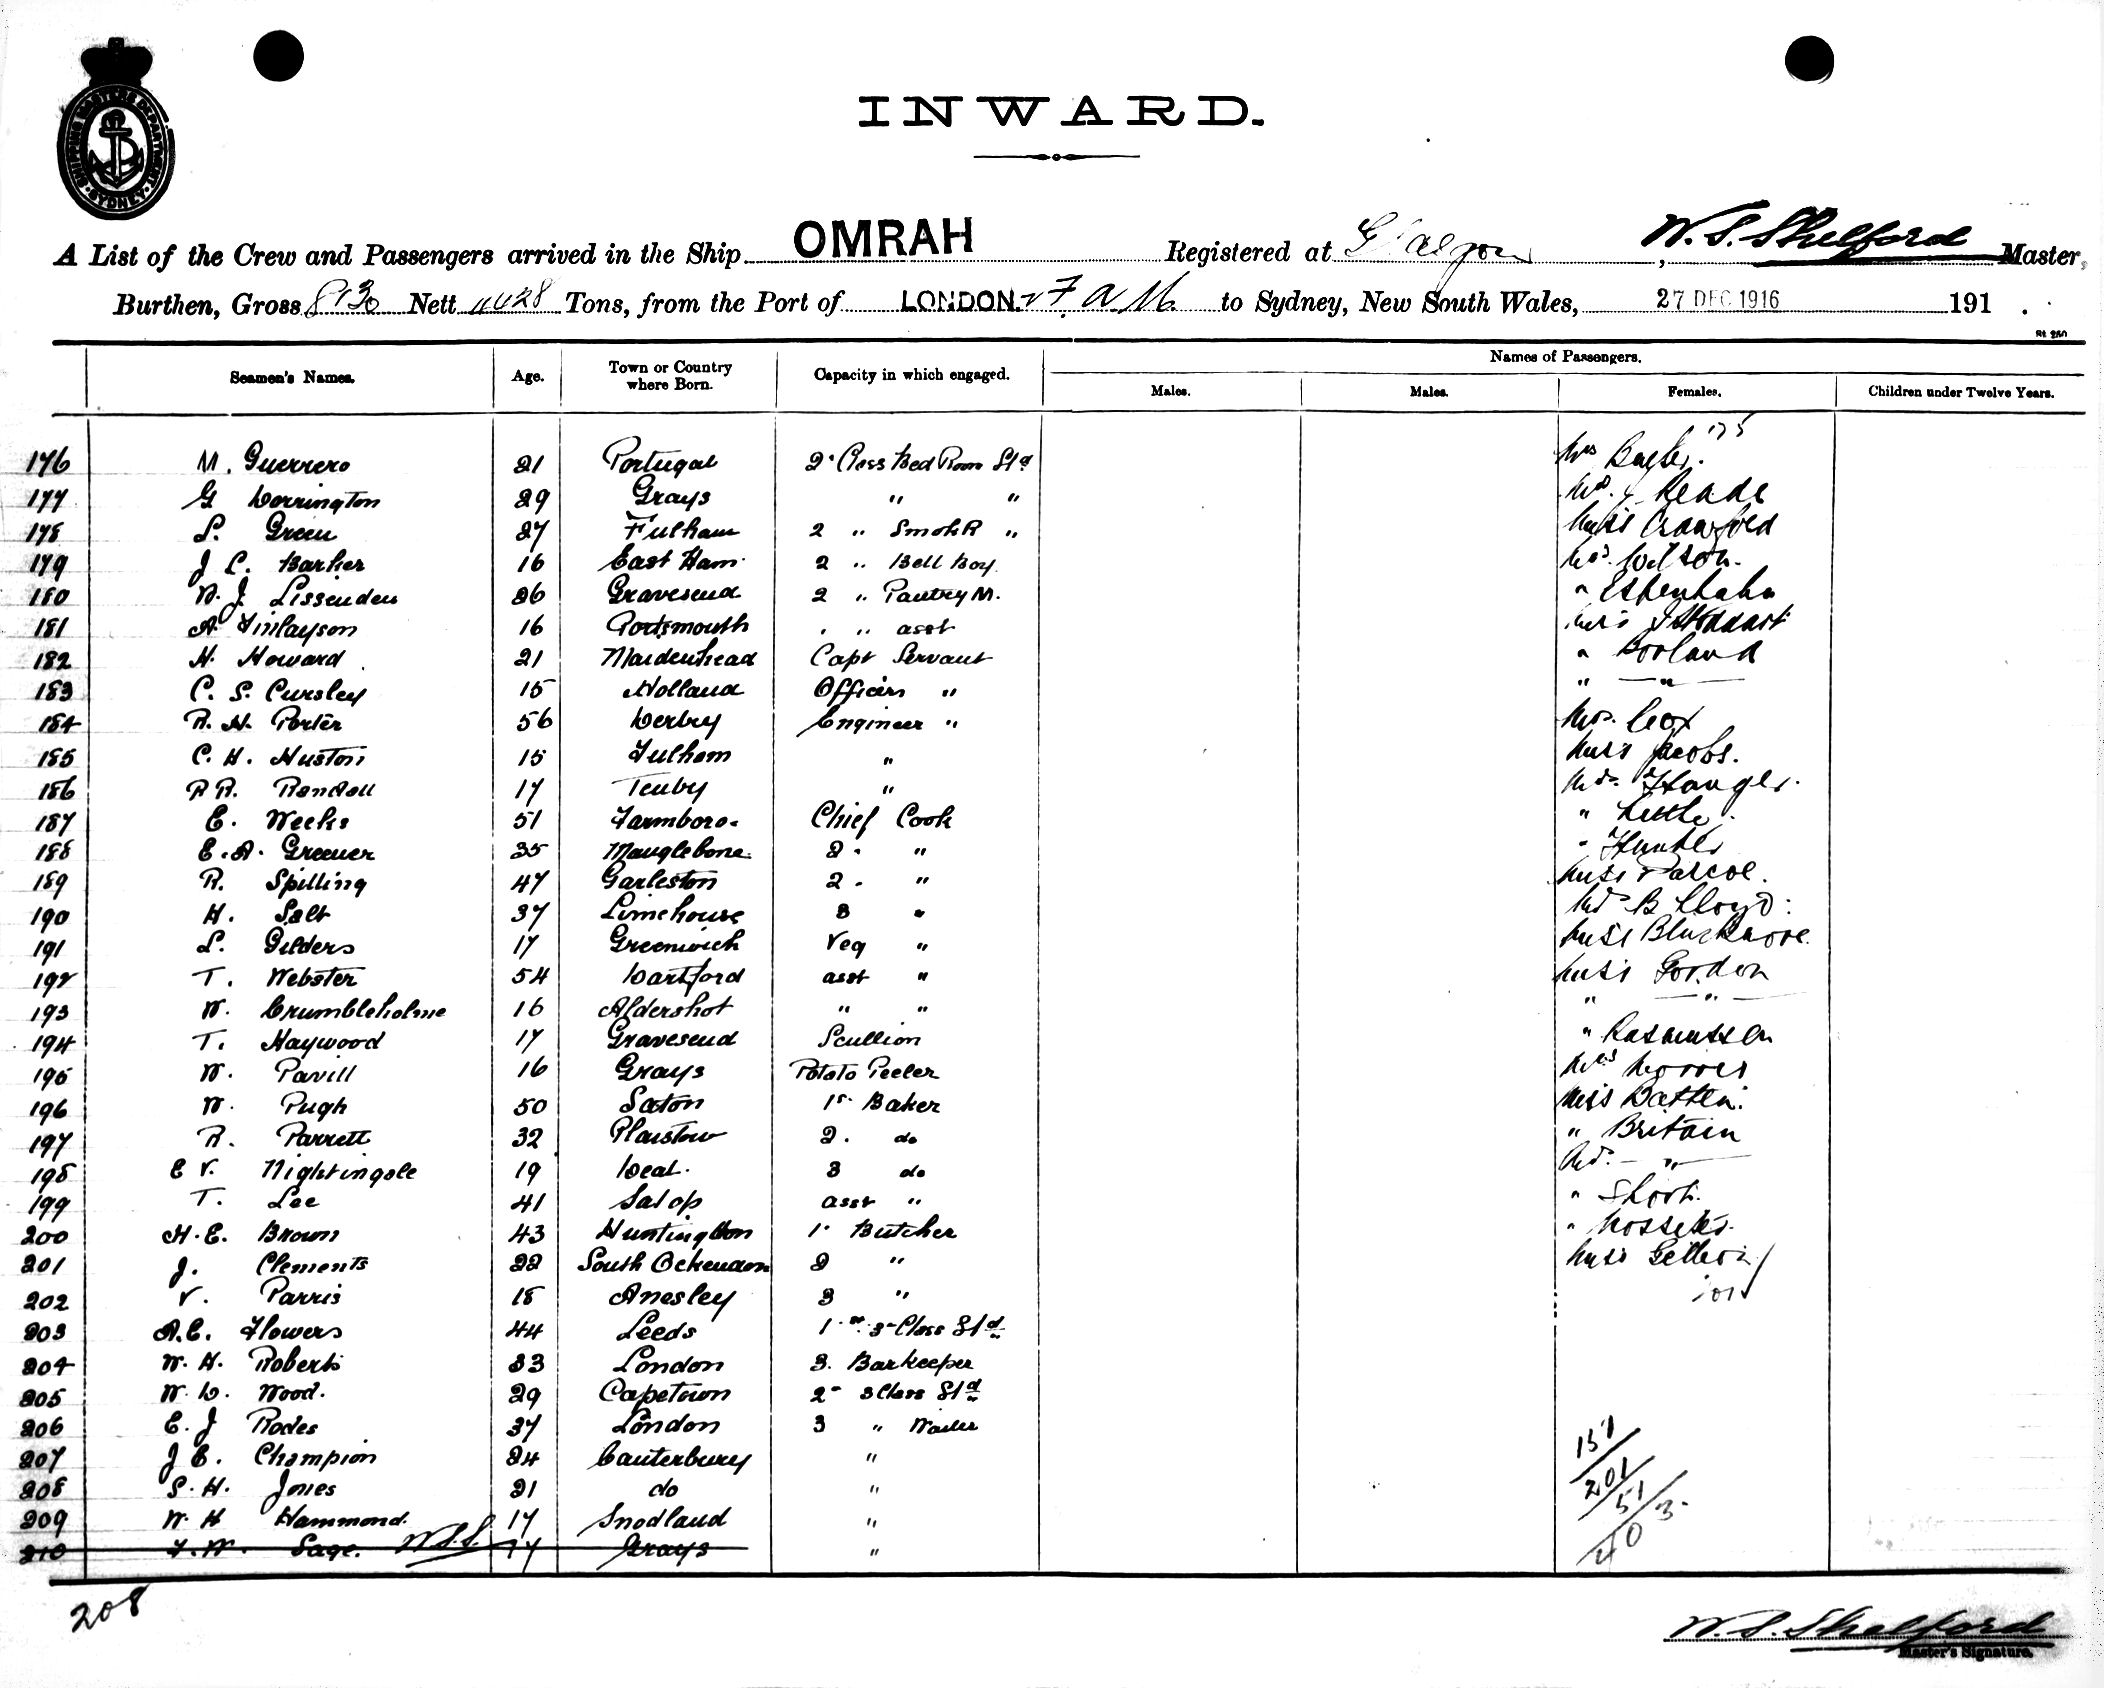 SHIPPING MASTERS DEPARTMENT SYDNEY
INWARD.
A List of the Crew and Passengers arrived in the Ship OMRAH Registered at Glasgow, W. S. Shelford Master,
Burthen, Gross 8130 Nett 4428 Tons, from the Port of LONDON. to Sydney, New South Wales, 27 DEC 1916 191 .
St 250
Seamen's Names. Age. Town or Country where Born. Capacity in which engaged. Names of Passengers.
Males. Males. Females. Children under Twelve Years.
175
176 M. Guerrero 21 Portugal 2. Class Bed Room Std Mrs
177 G Dorrington 29 Grays " " Mrs. J Reade
178 L. Green 27 Fulham 2 " Smok R " Miss Crawford
179 J C. Barker 16 East Ham. 2 " Bell Boy Mrs. Wilson.
180 W. J. Lissenden 26 Gravesend 2 " Pantry M. " Espenhahn
181 A Finlayson 16 Portsmouth " " asst Miss J Stoddart
182 H. Howard 21 Maidenhead Capt Servant " Borland
183 C. S. Cursley 15 Holland Officers " " — " —
184 R. H. Porter 56 Derby Engineer " Mrs. Cox
185 C. H. Huston 15 Fulham " Miss Jacobs.
186 R R. Randall 17 Tenby " Mrs. Hanger.
187 E. Weeks 51 Farmboro. Chief Cook " Little.
188 E. A. Greener 35 Mauglebone. 2. " " Hunter
189 R. Spilling 47 Garleston 2. " Miss Pascoe.
190 H. Salt 37 Limehouse 3 " Mrs B Lloyd.
191 L. Gilders 17 Greenwich Veg " Miss Blackmore.
192 T. Webster 54 Dartford asst " Miss Gordon
193 W. Crumbleholme 16 Aldershot " " " — " —
194 T. Haywood 17 Gravesend Scullion " Rasmussen
195 W. Pavill 16 Grays Potato Peeler Mrs Morris
196 W. Pugh 50 Saton 1st. Baker Miss Batten.
197 R. Parrett 32 Plaistow 2. do " Britain
198 E V. Nightingale 19 Deal. 3 do Mrs. — " —
199 T. Lee 41 Salop asst " " Short.
200 H. E. Brown 43 Huntingdon 1. Butcher "
201 J. Clements 22 South Ockendon 2 " Miss
202 V. Parris 18 Anesley 3 " 201
203 A. E. Flowers 44 Leeds 1. 3 Class Std
204 W. H. Roberts 33 London 3. Barkeeper
205 W. D. Wood. 29 Capetown 2 3 Class Std
206 E. J Rodes 37 London 3 " Waiter
207 J E. Champion 24 Canterbury "
208 S. H. Jones 21 do "
209 W. H Hammond. 17 Snodland "
210 F. W. Sage. W.S.S. 17 Grays "
151
201
51
403.
208
W. S. Shelford
Master's Signature.